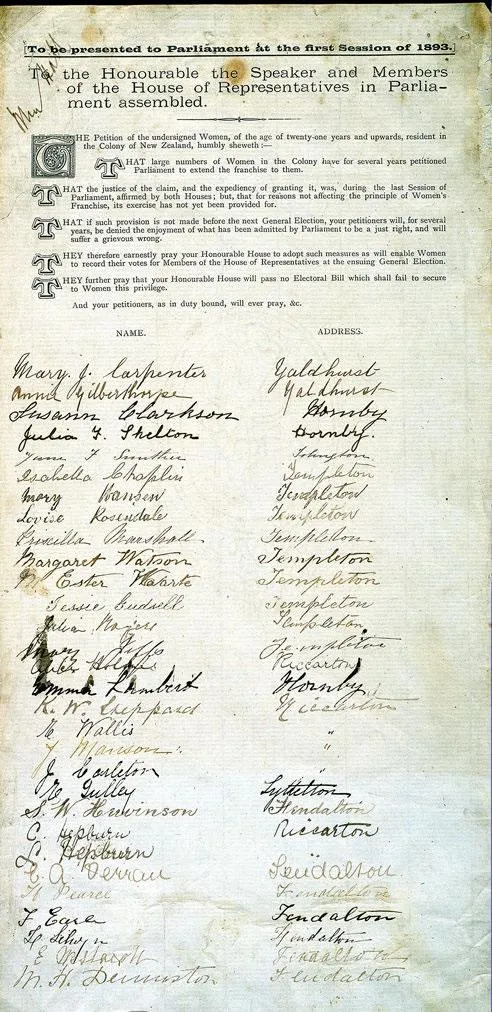 [To be presented to Parliament at the first Session of 1893.]
To the Honourable the Speaker and Members
of the House of Representatives in Parlia-
ment assembled.
THE Petition of the undersigned Women, of the age of twenty-one years and upwards, resident in
the Colony of New Zealand, humbly sheweth :—
THAT large numbers of Women in the Colony have for several years petitioned
Parliament to extend the franchise to them.
THAT the justice of the claim, and the expediency of granting it, was, during the last Session of
Parliament, affirmed by both Houses; but, that for reasons not affecting the principle of Women's
Franchise, its exercise has not yet been provided for.
THAT if such provision is not made before the next General Election, your petitioners will, for several
years, be denied the enjoyment of what has been admitted by Parliament to be a just right, and will
suffer a grievous wrong.
THEY therefore earnestly pray your Honourable House to adopt such measures as will enable Women
to record their votes for Members of the House of Representatives at the ensuing General Election.
THEY further pray that your Honourable House will pass no Electoral Bill which shall fail to secure
to Women this privilege.
And your petitioners, as in duty bound, will ever pray, &c.
NAME. ADDRESS.
Mary J. Carpenter Yaldhurst
Annie Gilberthorpe Yaldhurst
Susann Clarkson Hornby
Julia F. Skelton Hornby.
Isabella Chaplin Templeton
Mary Hansen Templeton
Louise Rosendale Templeton
Priscilla Marshall Templeton
Margaret Watson Templeton
Ester Templeton
Jessie Templeton
Templeton
Templeton
Riccarton
Emma Lambert Hornby
K. W. Sheppard Riccarton
Wallis "
Manson "
J. Carleton "
Gulley Lyttelton
S. W. Fendalton
C. Hepburn Riccarton
Hepburn
C. A. Fendalton
Pearce Fendalton
F Earle Fendalton
Selwyn Fendalton
E Fendalton
M. H. Denniston Fendalton